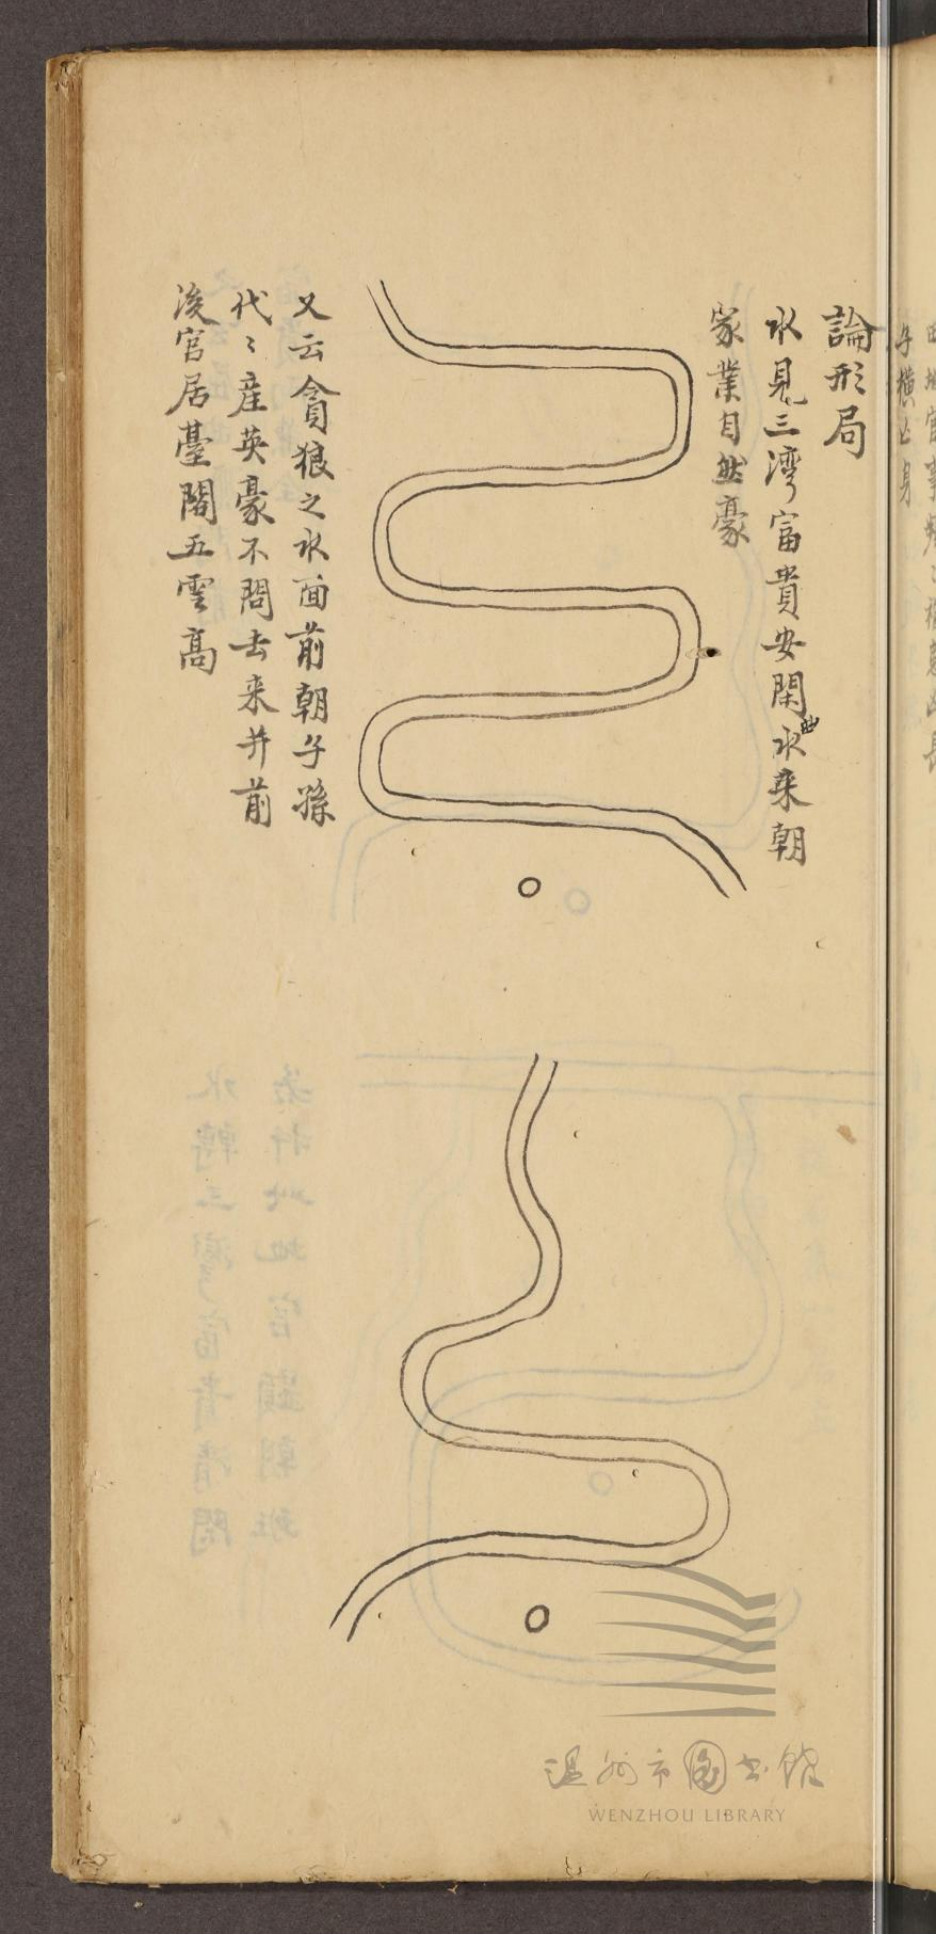 論形局
水見三湾富貴安閑曲水来朝
家業自然豪
又云貪狼之水面前朝子孫
代〻産英豪不問去来并前
後官居䑓閣五雲髙
温州市图书馆
WENZHOU LIBRARY